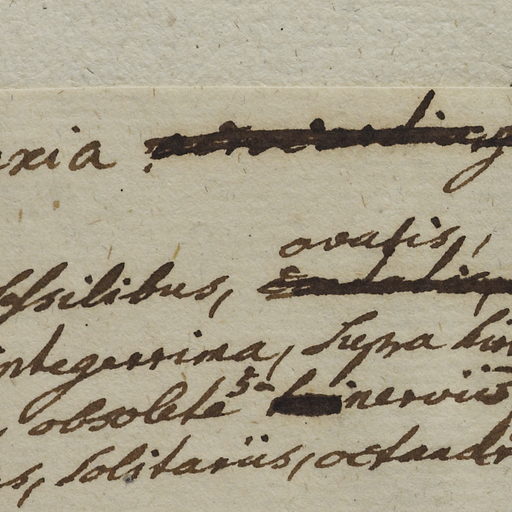 exia
ovatis,
sessilibus,
integerrima, supra hir
, obsolete 5-nerviis
us, solitariis, octandr